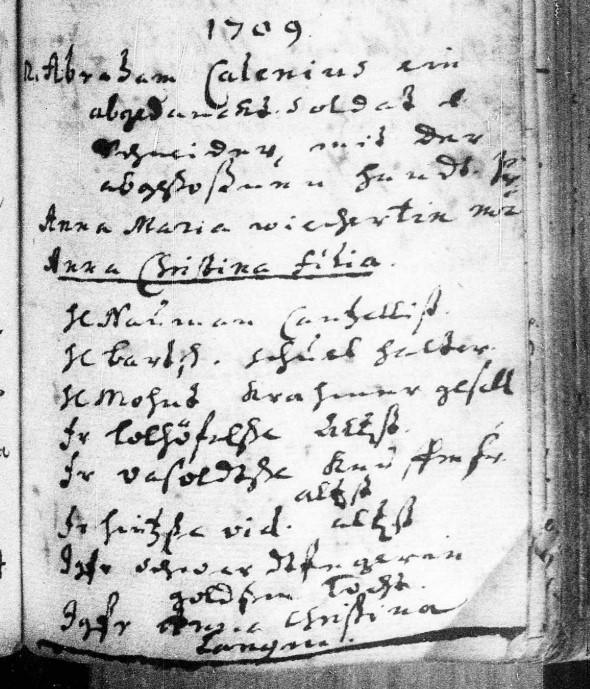 1709.
12. Abraham Calenius ein
abgedanckt. Soldat &
Schneider, mit der
abgeschoßnen Handt. Pr
Anna Maria wichertin mr
Anna Christina filia.
H Nauman Cantzellist.
H bartsch. Schuel halter
H Mohnt Krahmer gesell
Fr lolhöfelsche Altst.
Fr vasoldtsche
altst
Fr vid. altst
Jgfr
goldsm Tocht.
Jgfr Christina
Langin.